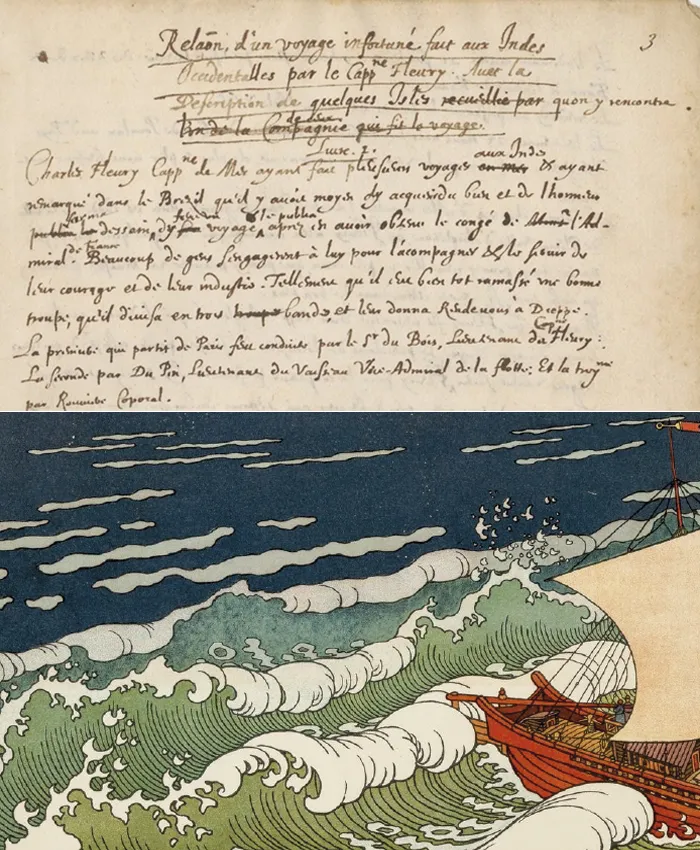 Relaõn, d'un voyage infortuné fait aux Indes
3
Occidentalles par le Capp^ne Fleury. Avec la
Description de quelques Isles recueillie par quon y rencontre.
l'un de la Compagnie de ceux qui fit le voyage.
Livre. 1.
Charles Fleury Capp^ne de Mer ayant fait plusieurs voyages en mer aux Indes & ayant
remarqué dans le Brezil qu'il y avoit moyen dy acquerir du bien et de l'honneur
dessein, dy voyage, & le publia apres en avoir obtenu le congé de l'Ad-
miral de France. Beaucoup de gens s'engagerent à luy pour l'acompagner & le servir de
leur courage et de leur industrie. Tellement qu'il eut bien tot ramassé une bonne
troupe, qu'il divisa en trois troupe bandes, et leur donna Rendevous à Dieppe.
La premiere qui partit de Paris feu conduite par le Sr du Bois, Lieutenant du Fleury:
La seconde par Du Pin, Lieutenant du Vaisseau Vice-Admiral de la flotte; Et la troy^me
par Corporal.